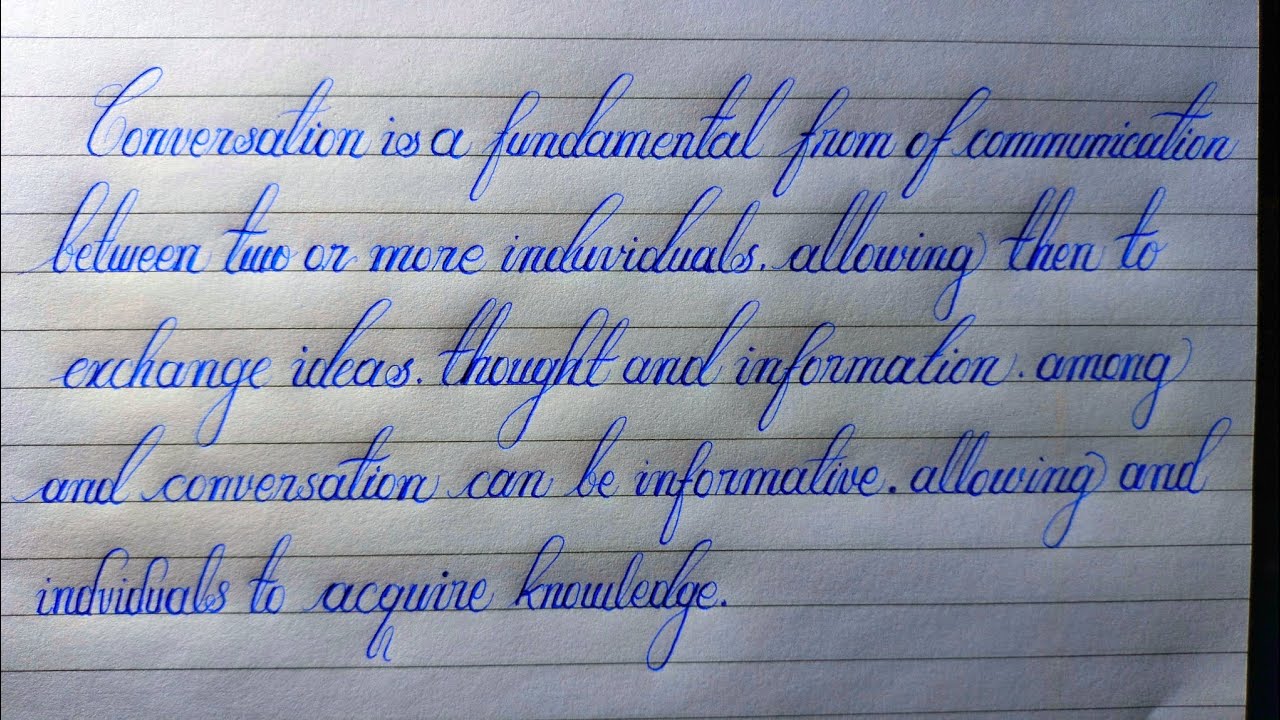 Conversation is a fundamental from of communication
between two or more induviduals. allowing then to
exchange ideas. thought and information. among
and conversation can be informative. allowing and
individuals to acquire knowledge.